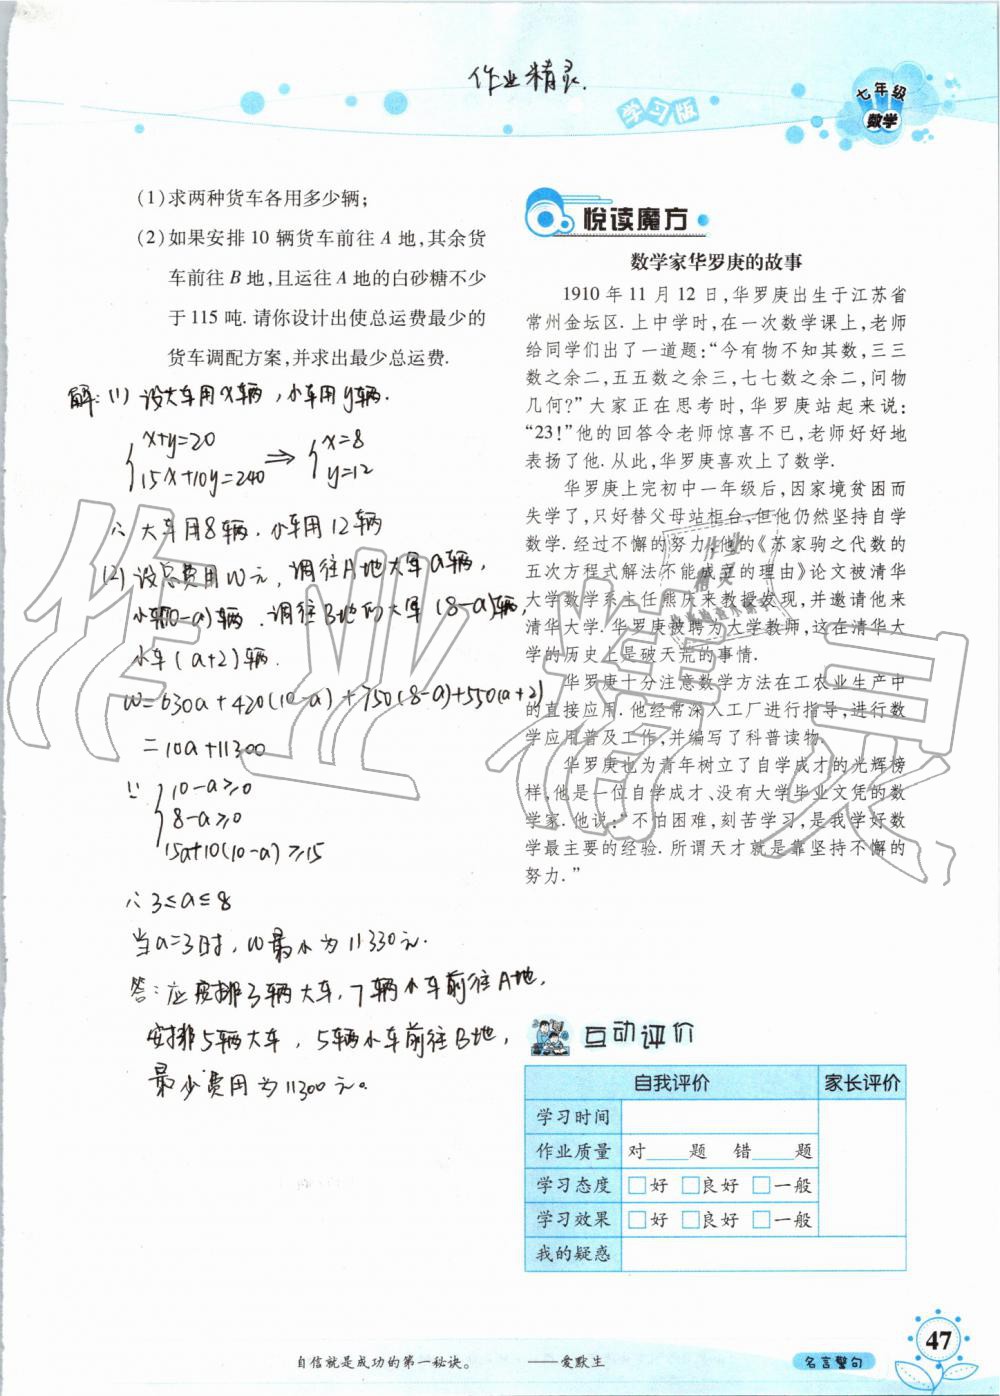 作业精灵.
学习版
七年级
数学
(1)求两种货车各用多少辆;
(2)如果安排 10 辆货车前往 A 地,其余货
车前往 B 地,且运往 A 地的白砂糖不少
于 115 吨. 请你设计出使总运费最少的
货车调配方案,并求出最少总运费.
解:(1) 设大车用x辆,小车用y辆.
x+y=20
15x+10y=240
⇒
x=8
y=12
∴ 大车用8辆,小车用12辆
(2) 设总费用W元,调往A地大车a辆,
小车(10-a)辆.调往B地的大车(8-a)辆,
小车(a+2)辆.
W=630a+420(10-a)+750(8-a)+550(a+2)
=10a+11300
∵
10-a≥0
8-a≥0
15a+10(10-a)≥15
∴3≤a≤8
当a=3时,W最小为11330元.
答:应安排3辆大车,7辆小车前往A地,
安排5辆大车,5辆小车前往B地,
最少费用为11300元。
悦读魔方
数学家华罗庚的故事
1910 年 11 月 12 日,华罗庚出生于江苏省
常州金坛区. 上中学时,在一次数学课上,老师
给同学们出了一道题:“今有物不知其数,三三
数之余二,五五数之余三,七七数之余二,问物
几何?”大家正在思考时,华罗庚站起来说:
“23!”他的回答令老师惊喜不已,老师好好地
表扬了他. 从此,华罗庚喜欢上了数学.
华罗庚上完初中一年级后,因家境贫困而
失学了,只好替父母站柜台,但他仍然坚持自学
数学. 经过不懈的努力,他的《苏家驹之代数的
五次方程式解法不能成立的理由》论文被清华
大学数学系主任熊庆来教授发现,并邀请他来
清华大学. 华罗庚被聘为大学教师,这在清华大
学的历史上是破天荒的事情.
华罗庚十分注意数学方法在工农业生产中
的直接应用. 他经常深入工厂进行指导,进行数
学应用普及工作,并编写了科普读物.
华罗庚也为青年树立了自学成才的光辉榜
样,他是一位自学成才、没有大学毕业文凭的数
学家. 他说:“不怕困难,刻苦学习,是我学好数
学最主要的经验. 所谓天才就是靠坚持不懈的
努力.”
互动评价
自我评价 家长评价
学习时间
作业质量 对____题 错____题
学习态度 □好 □良好 □一般
学习效果 □好 □良好 □一般
我的疑惑
作业精灵
自信就是成功的第一秘诀。 ——爱默生
名言警句
47